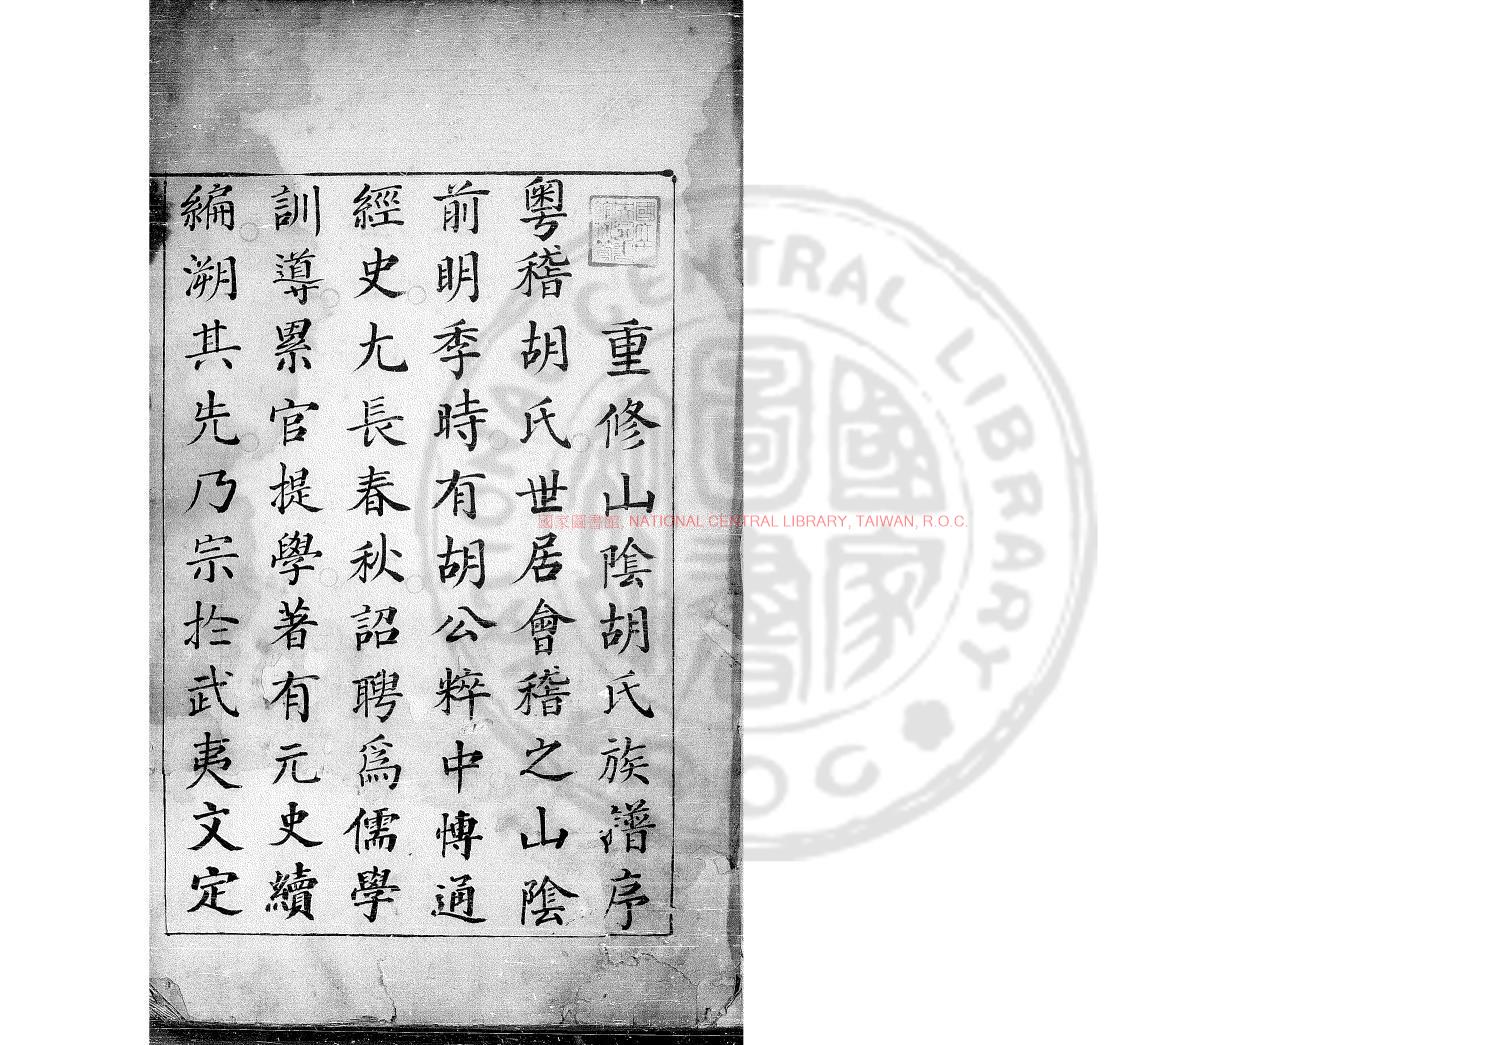 重修山陰胡氏族譜序
粤稽胡氏世居會稽之山陰
前明季時有胡公粹中博通
經史尤長春秋詔聘爲儒學
訓導累官提學著有元史續
編溯其先乃宗於武夷文定
國家圖書館, NATIONAL CENTRAL LIBRARY, TAIWAN, R.O.C.
NATIONAL CENTRAL LIBRARY
R.O.C.
國家圖書